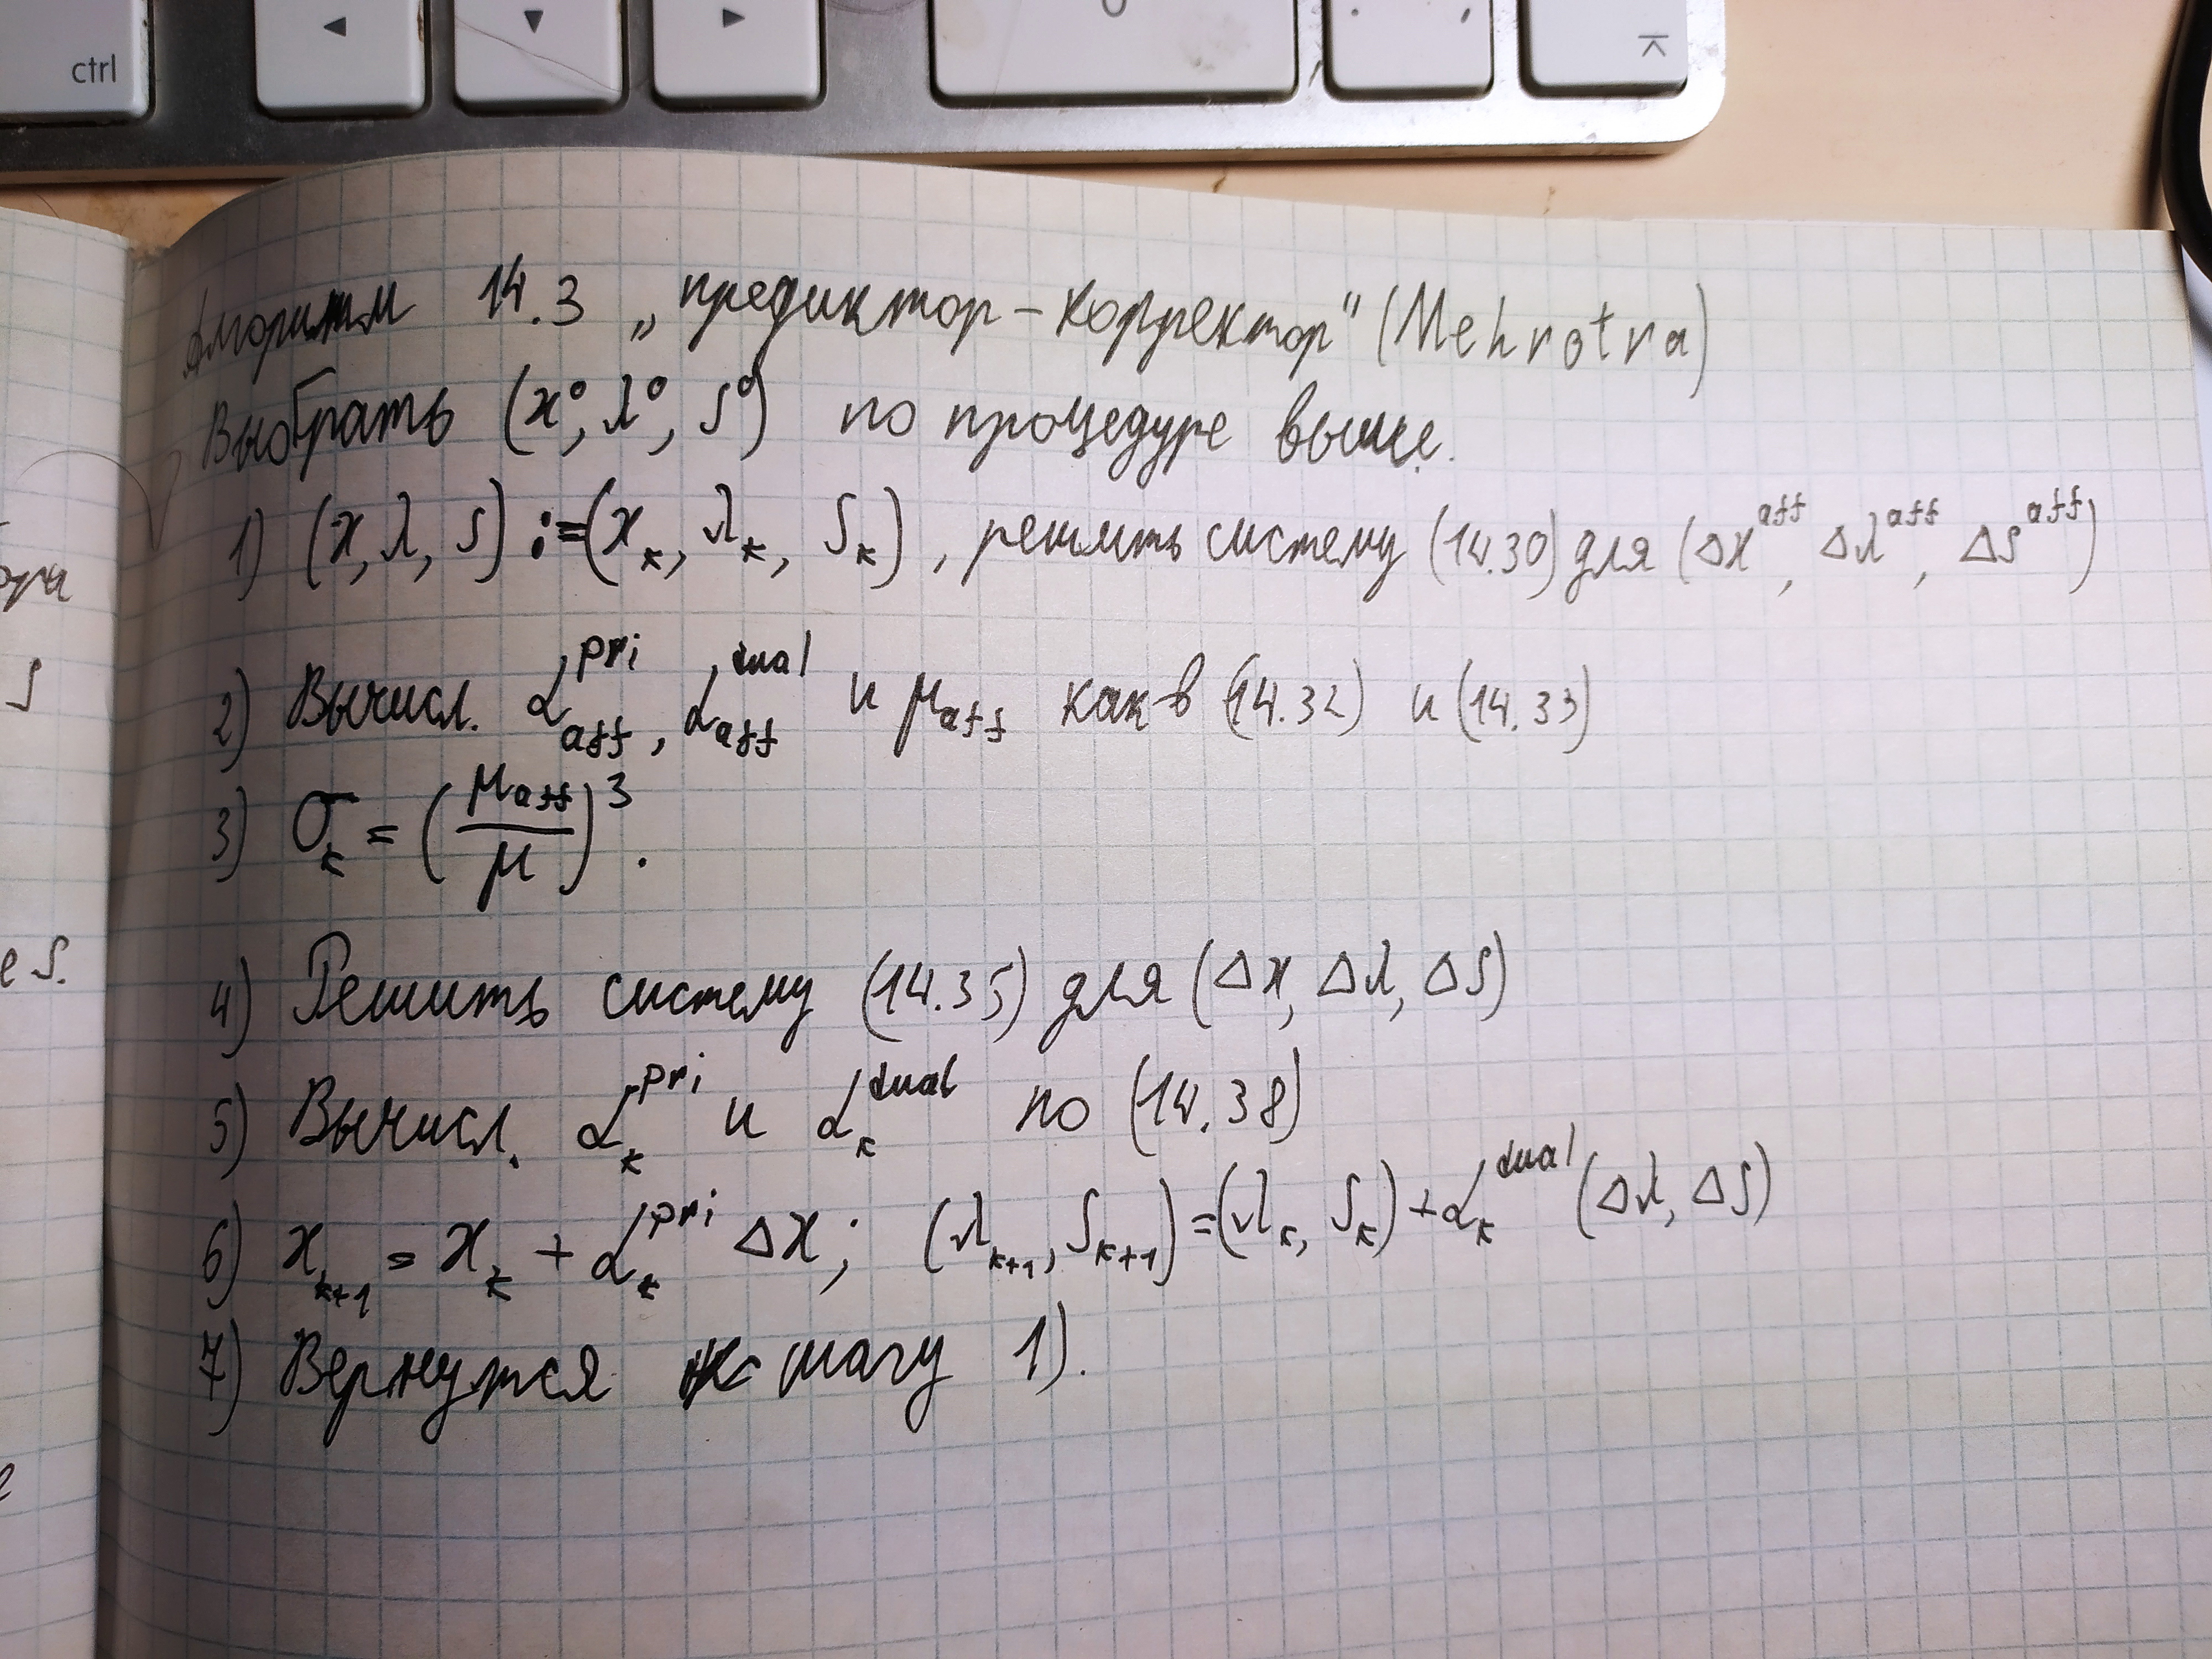 ctrl
Алгоритм 14.3 „предиктор-корректор" (Mehrotra)
Выбрать (x⁰, λ⁰, s⁰) по процедуре выше.
1) (x, λ, s) := (x_k, λ_k, s_k), решить систему (14.30) для (Δx^aff, Δλ^aff, Δs^aff)
2) Вычисл. α_aff^pri, α_aff^dual и μ_aff как в (14.32) и (14.33)
3) σ_k = (μ_aff / μ)³.
4) Решить систему (14.35) для (Δx, Δλ, Δs)
5) Вычисл. α_k^pri и α_k^dual по (14.38)
6) x_k+1 = x_k + α_k^pri Δx; (λ_k+1, s_k+1) = (λ_k, s_k) + α_k^dual (Δλ, Δs)
7) Вернутся к шагу 1).